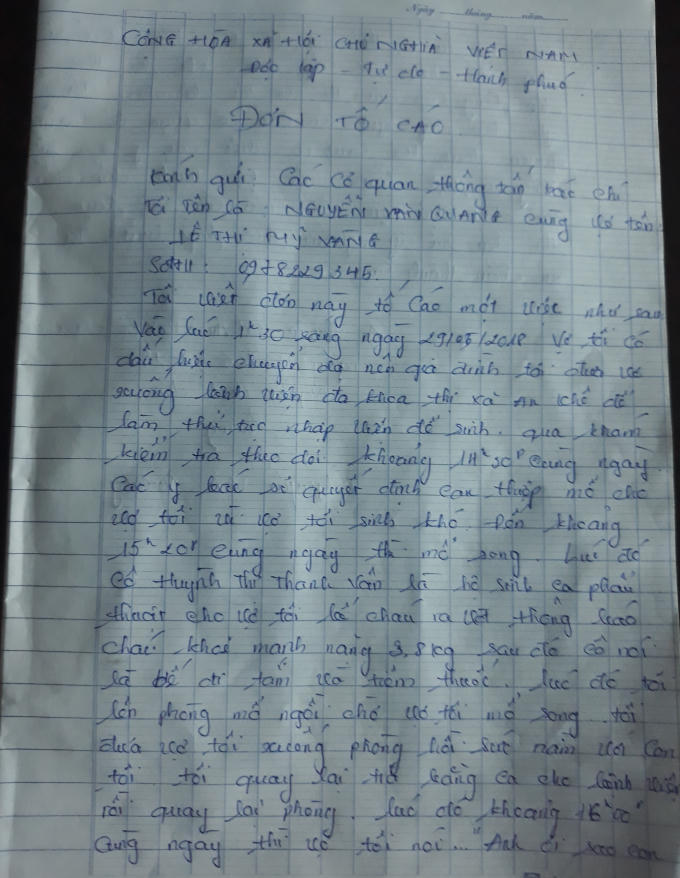 Ngày tháng năm
CỘNG HÒA XÃ HỘI CHỦ NGHĨA VIỆT NAM
Độc lập - Tự do - Hạnh phúc
ĐƠN TỐ CÁO
Kính gửi: Các cơ quan thông tấn báo chí
Tôi tên là: NGUYỄN VĂN QUANG cùng vợ tên:
LÊ THỊ MỸ VÀNG
SĐT: 0978229345.
Tôi viết đơn này tố cáo một việc như sau
Vào lúc 1h30 sáng ngày 29/05/2018 Vợ tôi có
dấu hiệu chuyển dạ nên gia đình tôi đưa vợ
xuống bệnh viện đa khoa thị xã An Khê để
làm thủ tục nhập viện để sinh. qua khám
kiểm tra theo dõi khoảng 14h30p cùng ngày.
Các y bác sĩ quyết định can thiệp mổ cho
vợ tôi vì vợ tôi sinh khó. Đến khoảng
15h20p cùng ngày thì mổ song. Lúc đó
cô Huỳnh Thị Thanh Vân là hộ sinh ca phẩu
thuật cho vợ tôi bế cháu ra và thông báo
cháu khoẻ mạnh nặng 3,8kg sau đó cô nói
là bế đi tắm và tiêm thuốc. lúc đó tôi
lên phòng mổ ngồi chờ vợ tôi mổ song. tôi
đưa vợ tôi xuống phòng hồi sức nằm với con
tôi. tôi quay lại trả băng ca cho bệnh viện
rồi quay lại phòng. lúc đó khoảng 16h00
cùng ngày thì vợ tôi nói... "Anh ơi sao con